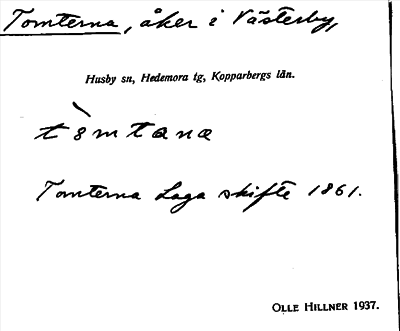 Tomterna, åker i Västerby,
Husby sn, Hedemora tg, Kopparbergs län.
Tomterna Laga skifte 1861.
OLLE HILLNER 1937.